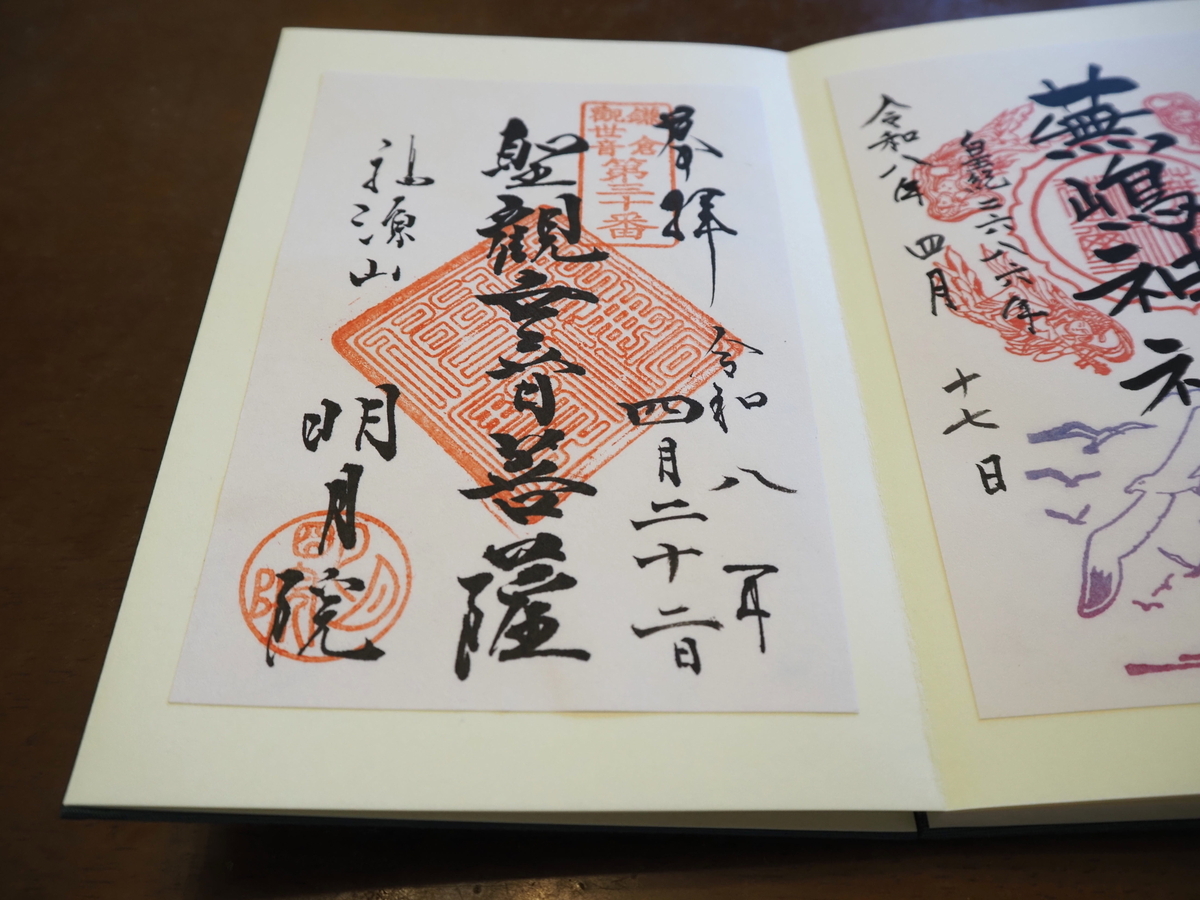 蕪嶋神社
皇紀二六八六年
令和八年四月
十七日
奉拝
令和八年
四月二十二日
鎌倉
觀世音
第三十番
聖観世音菩薩
福源山
明月院